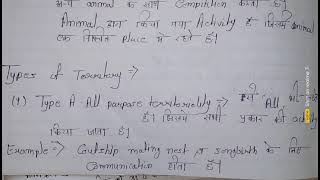 अन्य animal के साथ Compitition करता है।
Animal द्वारा किया गया Activity है जिसमें animal
एक निश्चित place में रहते हैं।
Types of Territory :->
(1) Type A - All purpose territoriality :-> All
है। जिसमें सभी प्रकार की activity
किया जाता है।
Example :-> mating nest songbirth के लिए
Communication होता है।